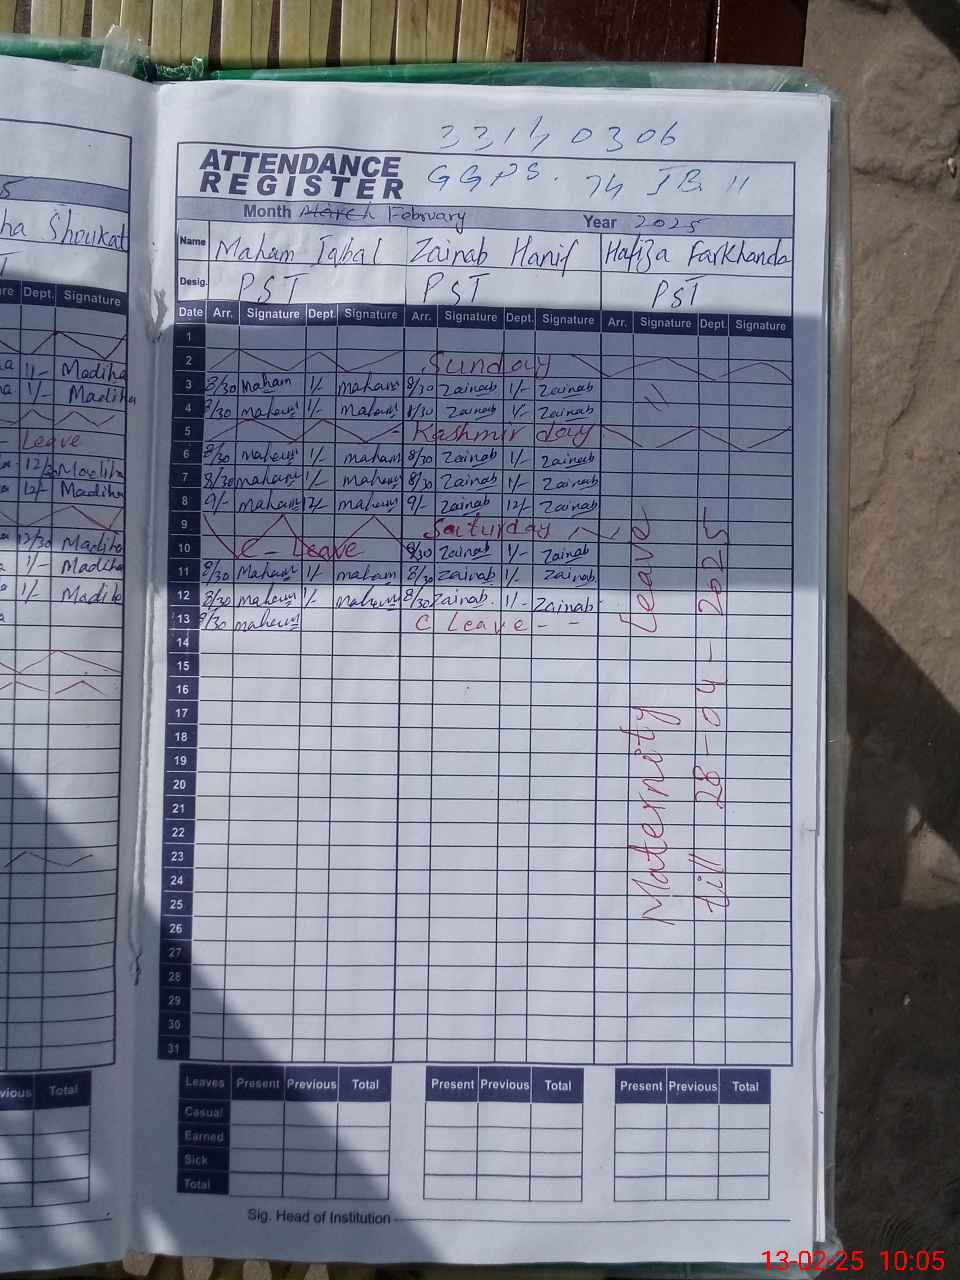 33140306
ATTENDANCE REGISTER GGPS. 74 JB II
Month March February Year 2025
Name Maham Iqbal Zainab Hanif Hafiza Farkhanda
Desig. PST PST PST
Date Arr. Signature Dept. Signature Arr. Signature Dept. Signature Arr. Signature Dept. Signature
1
2 Sunday
3 8/30 Maham 1/- maham 8/30 Zainab 1/- Zainab
4 8/30 maham 1/- maham 8/30 Zainab 1/- Zainab
5 Kashmir day
6 8/30 maham 1/- maham 8/30 Zainab 1/- Zainab
7 8/30 maham 1/- maham 8/30 Zainab 1/- Zainab
8 9/- maham 12/- maham 9/- Zainab 12/- Zainab
9 Saturday
10 C - Leave 8/30 Zainab 1/- Zainab
11 8/30 Maham 1/- maham 8/30 Zainab 1/- Zainab.
12 8/30 maham 1/- maham 8/30 Zainab. 1/- Zainab
13 8/30 maham C Leave - -
14
15
16
17
18
19
20
21
22
23
24
25
26
27
28
29
30
31
Maternity Leave
till 28-04-2025
Leaves Present Previous Total Present Previous Total Present Previous Total
Casual
Earned
Sick
Total
Sig. Head of Institution
ha Shoukat
Dept. Signature
11- Madiha
1/- Madiha
- Leave
12/30 Madiha
12/- Madiha
12/30 Madiha
1/- Madiha
1/- Madiha
Total
13-02-25 10:05